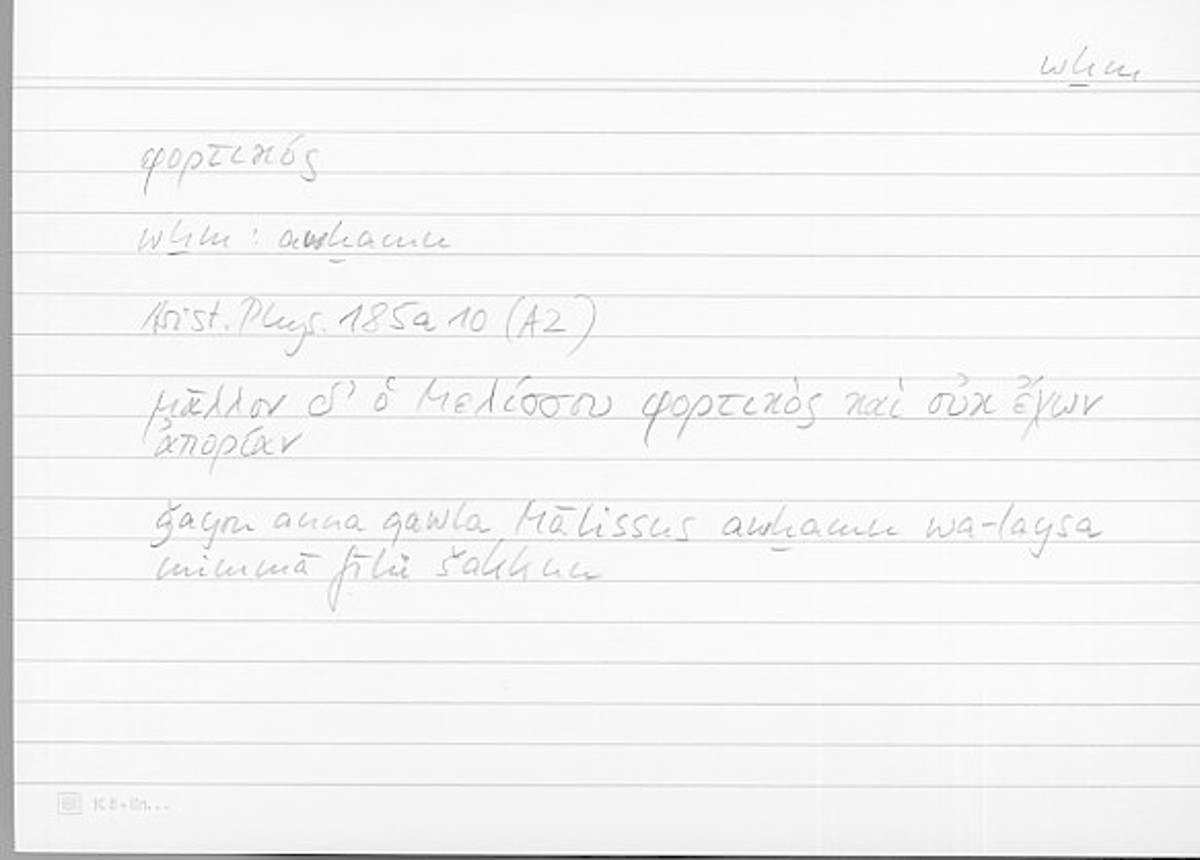 wḫm
φορτικός
wḫm : awḫamu
Arist. Phys. 185a10 (A2)
μᾶλλον δ' ὁ Μελίσσου φορτικὸς καὶ οὐκ ἔχων
ἀπορίαν
ġayra anna qawla Mālissus awḫamu wa-laysa
mimmā fīhi šakkun